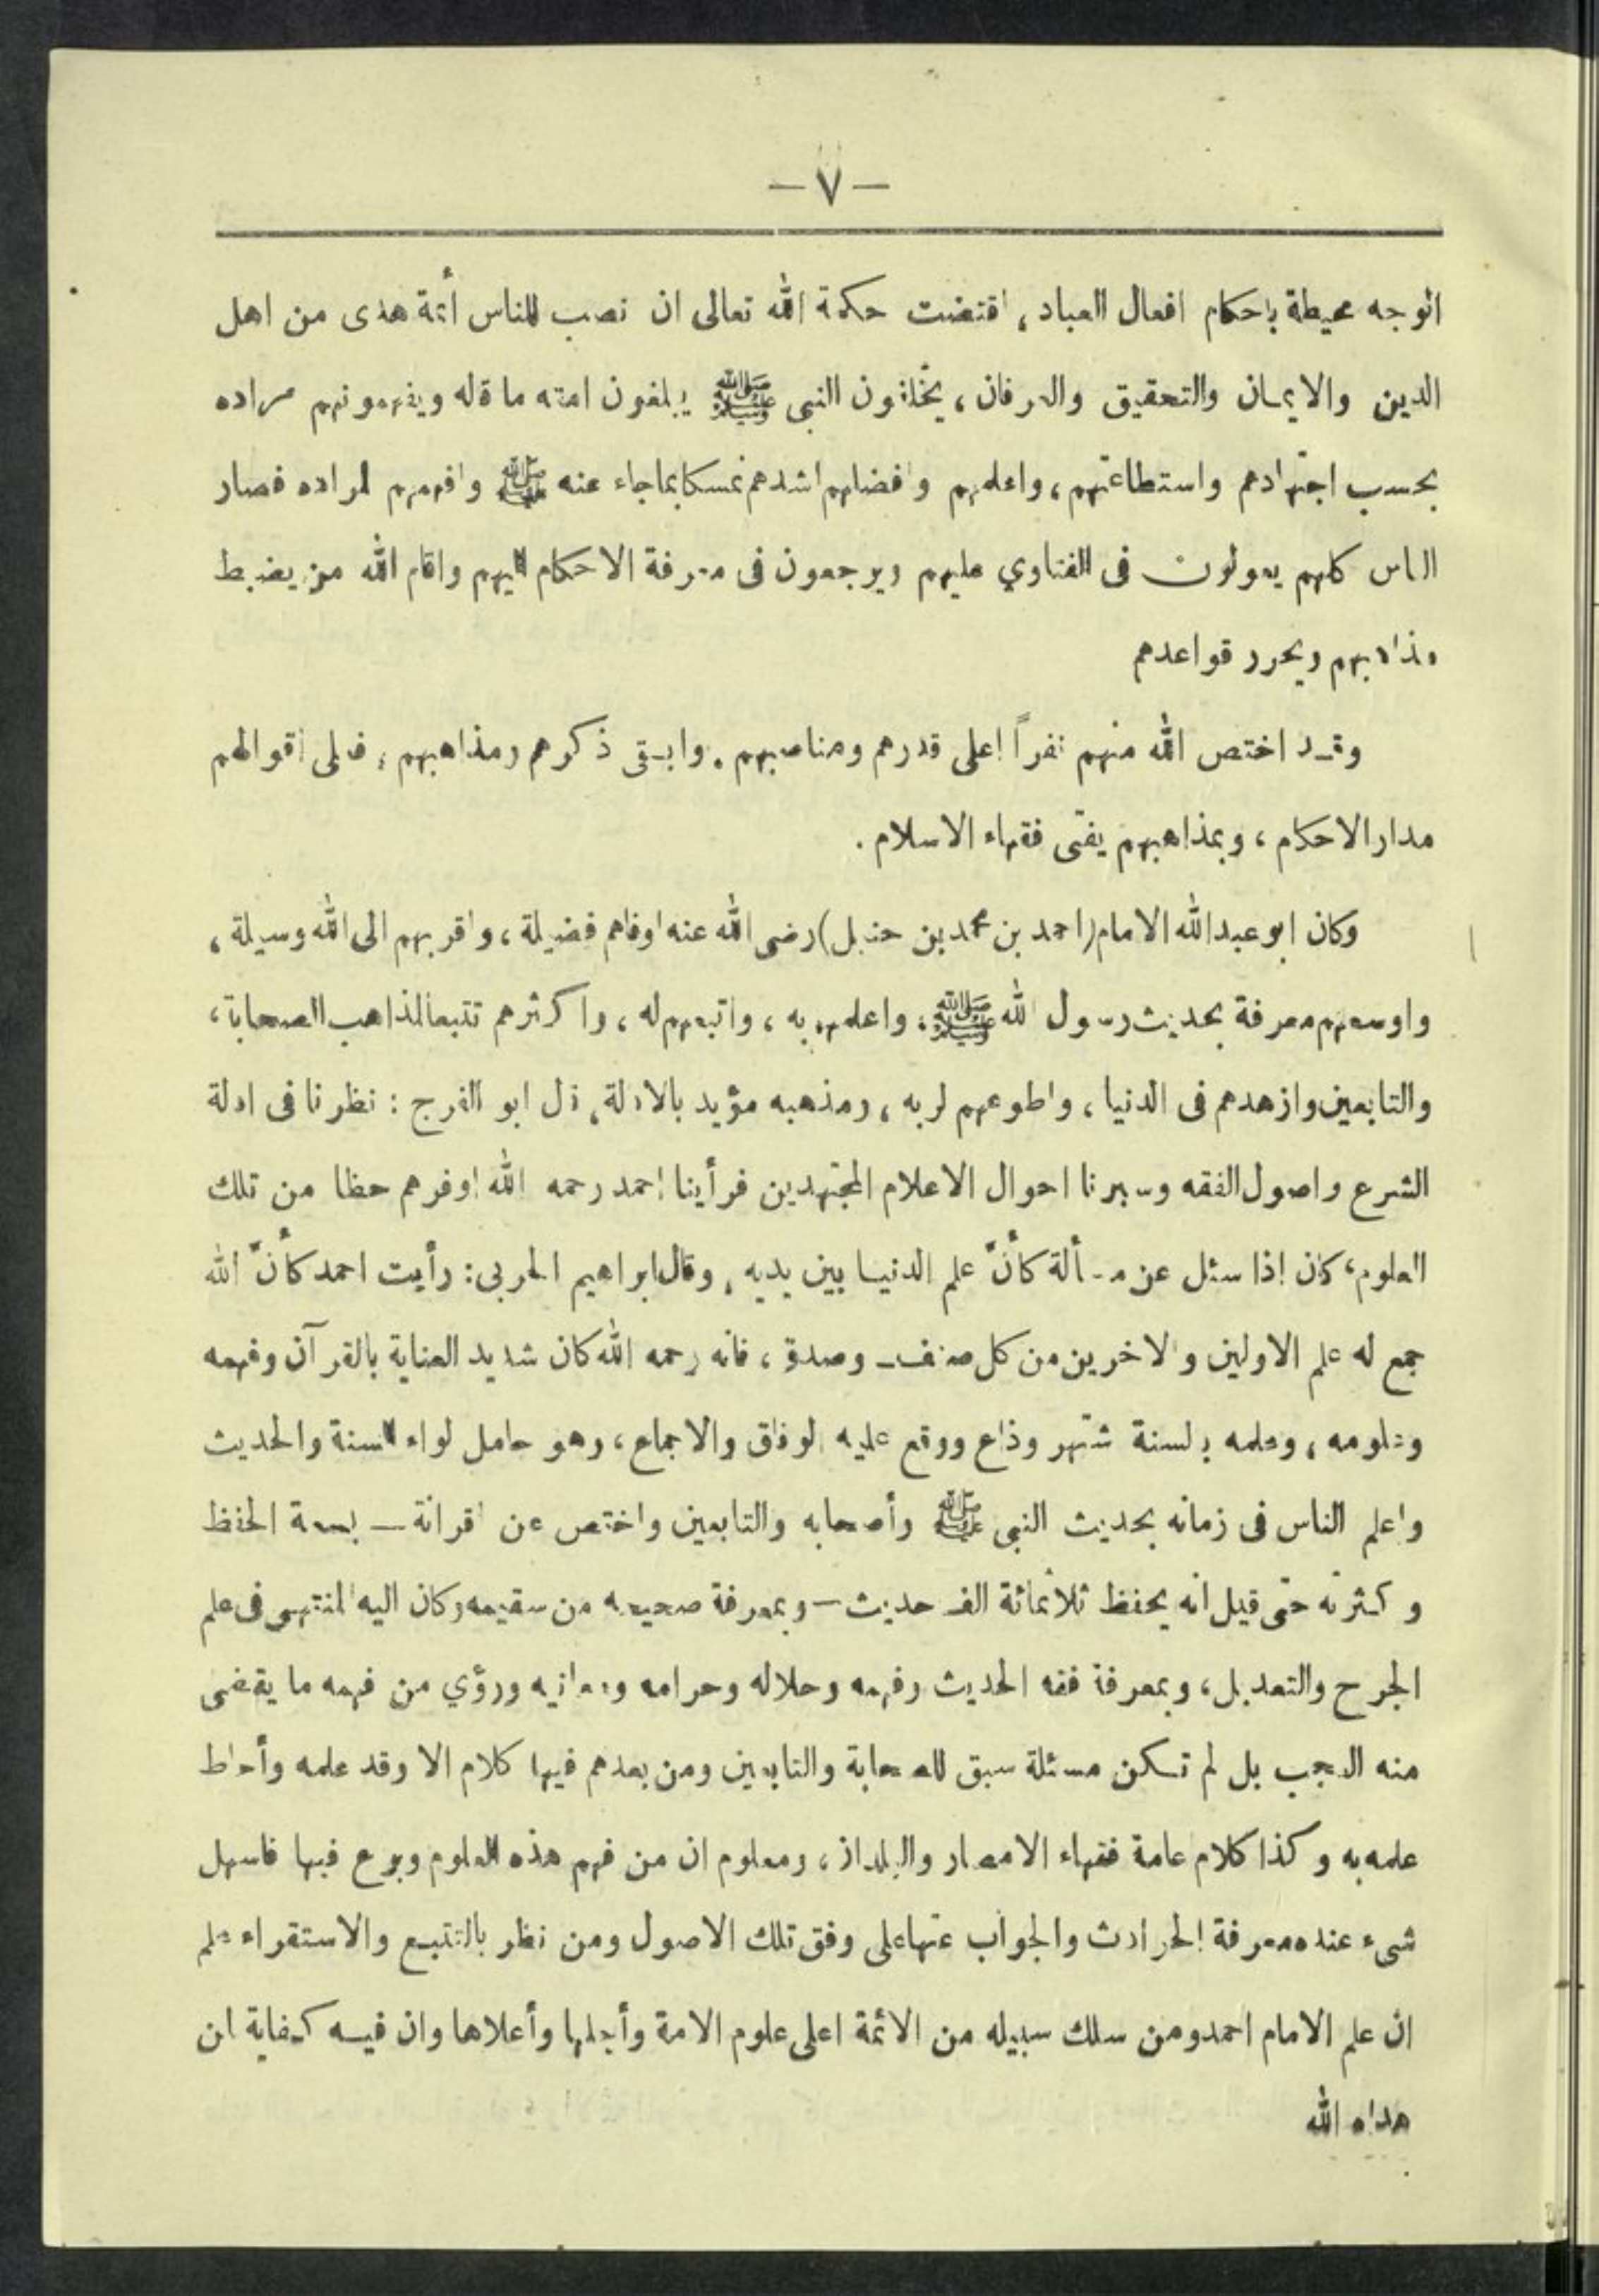 — ٧ —
الوجه محيطة باحكام افعال العباد، اقتضت حكمة الله تعالى ان نصب للناس أئمة هدى من اهل
الدين والايمان والتحقيق والعرفان، يخلفون النبي ﷺ يبلغون امته ما قاله ويفهمونهم مراده
بحسب اجتهادهم واستطاعتهم، واعلمهم وافضلهم اشدهم تمسكا بما جاء عنه ﷺ وافهمهم لمراده فصار
الناس كلهم يعولون في الفتاوي عليهم ويرجعون في معرفة الاحكام اليهم واقام الله من يضبط
مذاهبهم ويحرر قواعدهم
وقد اختص الله منهم نفراً اعلى قدرهم ومناصبهم. وابقى ذكرهم ومذاهبهم، فعلى اقوالهم
مدار الاحكام، وبمذاهبهم يفتى فقهاء الاسلام.
وكان ابو عبدالله الامام (احمد بن محمد بن حنبل) رضى الله عنه اوفاهم فضيلة، واقربهم الى الله وسيلة،
واوسعهم معرفة بحديث رسول الله ﷺ، واعلمهم به، واتبعهم له، واكثرهم تتبعا لمذاهب الصحابة،
والتابعين وازهدهم في الدنيا، واطوعهم لربه، ومذهبه مؤيد بالادلة، قال ابو الفرج : نظرنا في ادلة
الشرع واصول الفقه وسبرنا احوال الاعلام المجتهدين فرأينا احمد رحمه الله اوفرهم حظا من تلك
العلوم، كان اذا سئل عن مسألة كأنّ علم الدنيا بين يديه، وقال ابراهيم الحربي: رأيت احمد كأنّ الله
جمع له علم الاولين والاخرين من كل صنف ـ وصدق، فانه رحمه الله كان شديد العناية بالقرآن وفهمه
وعلومه، وعلمه بالسنة اشتهر وذاع ووقع عليه الوفاق والاجماع، وهو حامل لواء السنة والحديث
واعلم الناس في زمانه بحديث النبي ﷺ وأصحابه والتابعين واختص عن اقرانه ـ بسعة الحفظ
وكثرته حتى قيل انه يحفظ ثلاثمائة الف حديث — وبمعرفة صحيحه من سقيمه وكان اليه المنتهى في علم
الجرح والتعديل، وبمعرفة فقه الحديث وفهمه وحلاله وحرامه ومعانيه ورؤي من فهمه ما يقضى
منه العجب بل لم تكن مسئلة سبق للصحابة والتابعين ومن بعدهم فيها كلام الا وقد علمه وأحاط
علمه به وكذا كلام عامة فقهاء الامصار والبلدان، ومعلوم ان من فهم هذه العلوم وبرع فيها فاسهل
شيء عنده معرفة الحوادث والجواب عنها على وفق تلك الاصول ومن نظر بالتتبع والاستقراء علم
ان علم الامام احمد ومن سلك سبيله من الائمة اعلى علوم الامة وأجلها وأعلاها وان فيه كفاية لمن
هداه الله